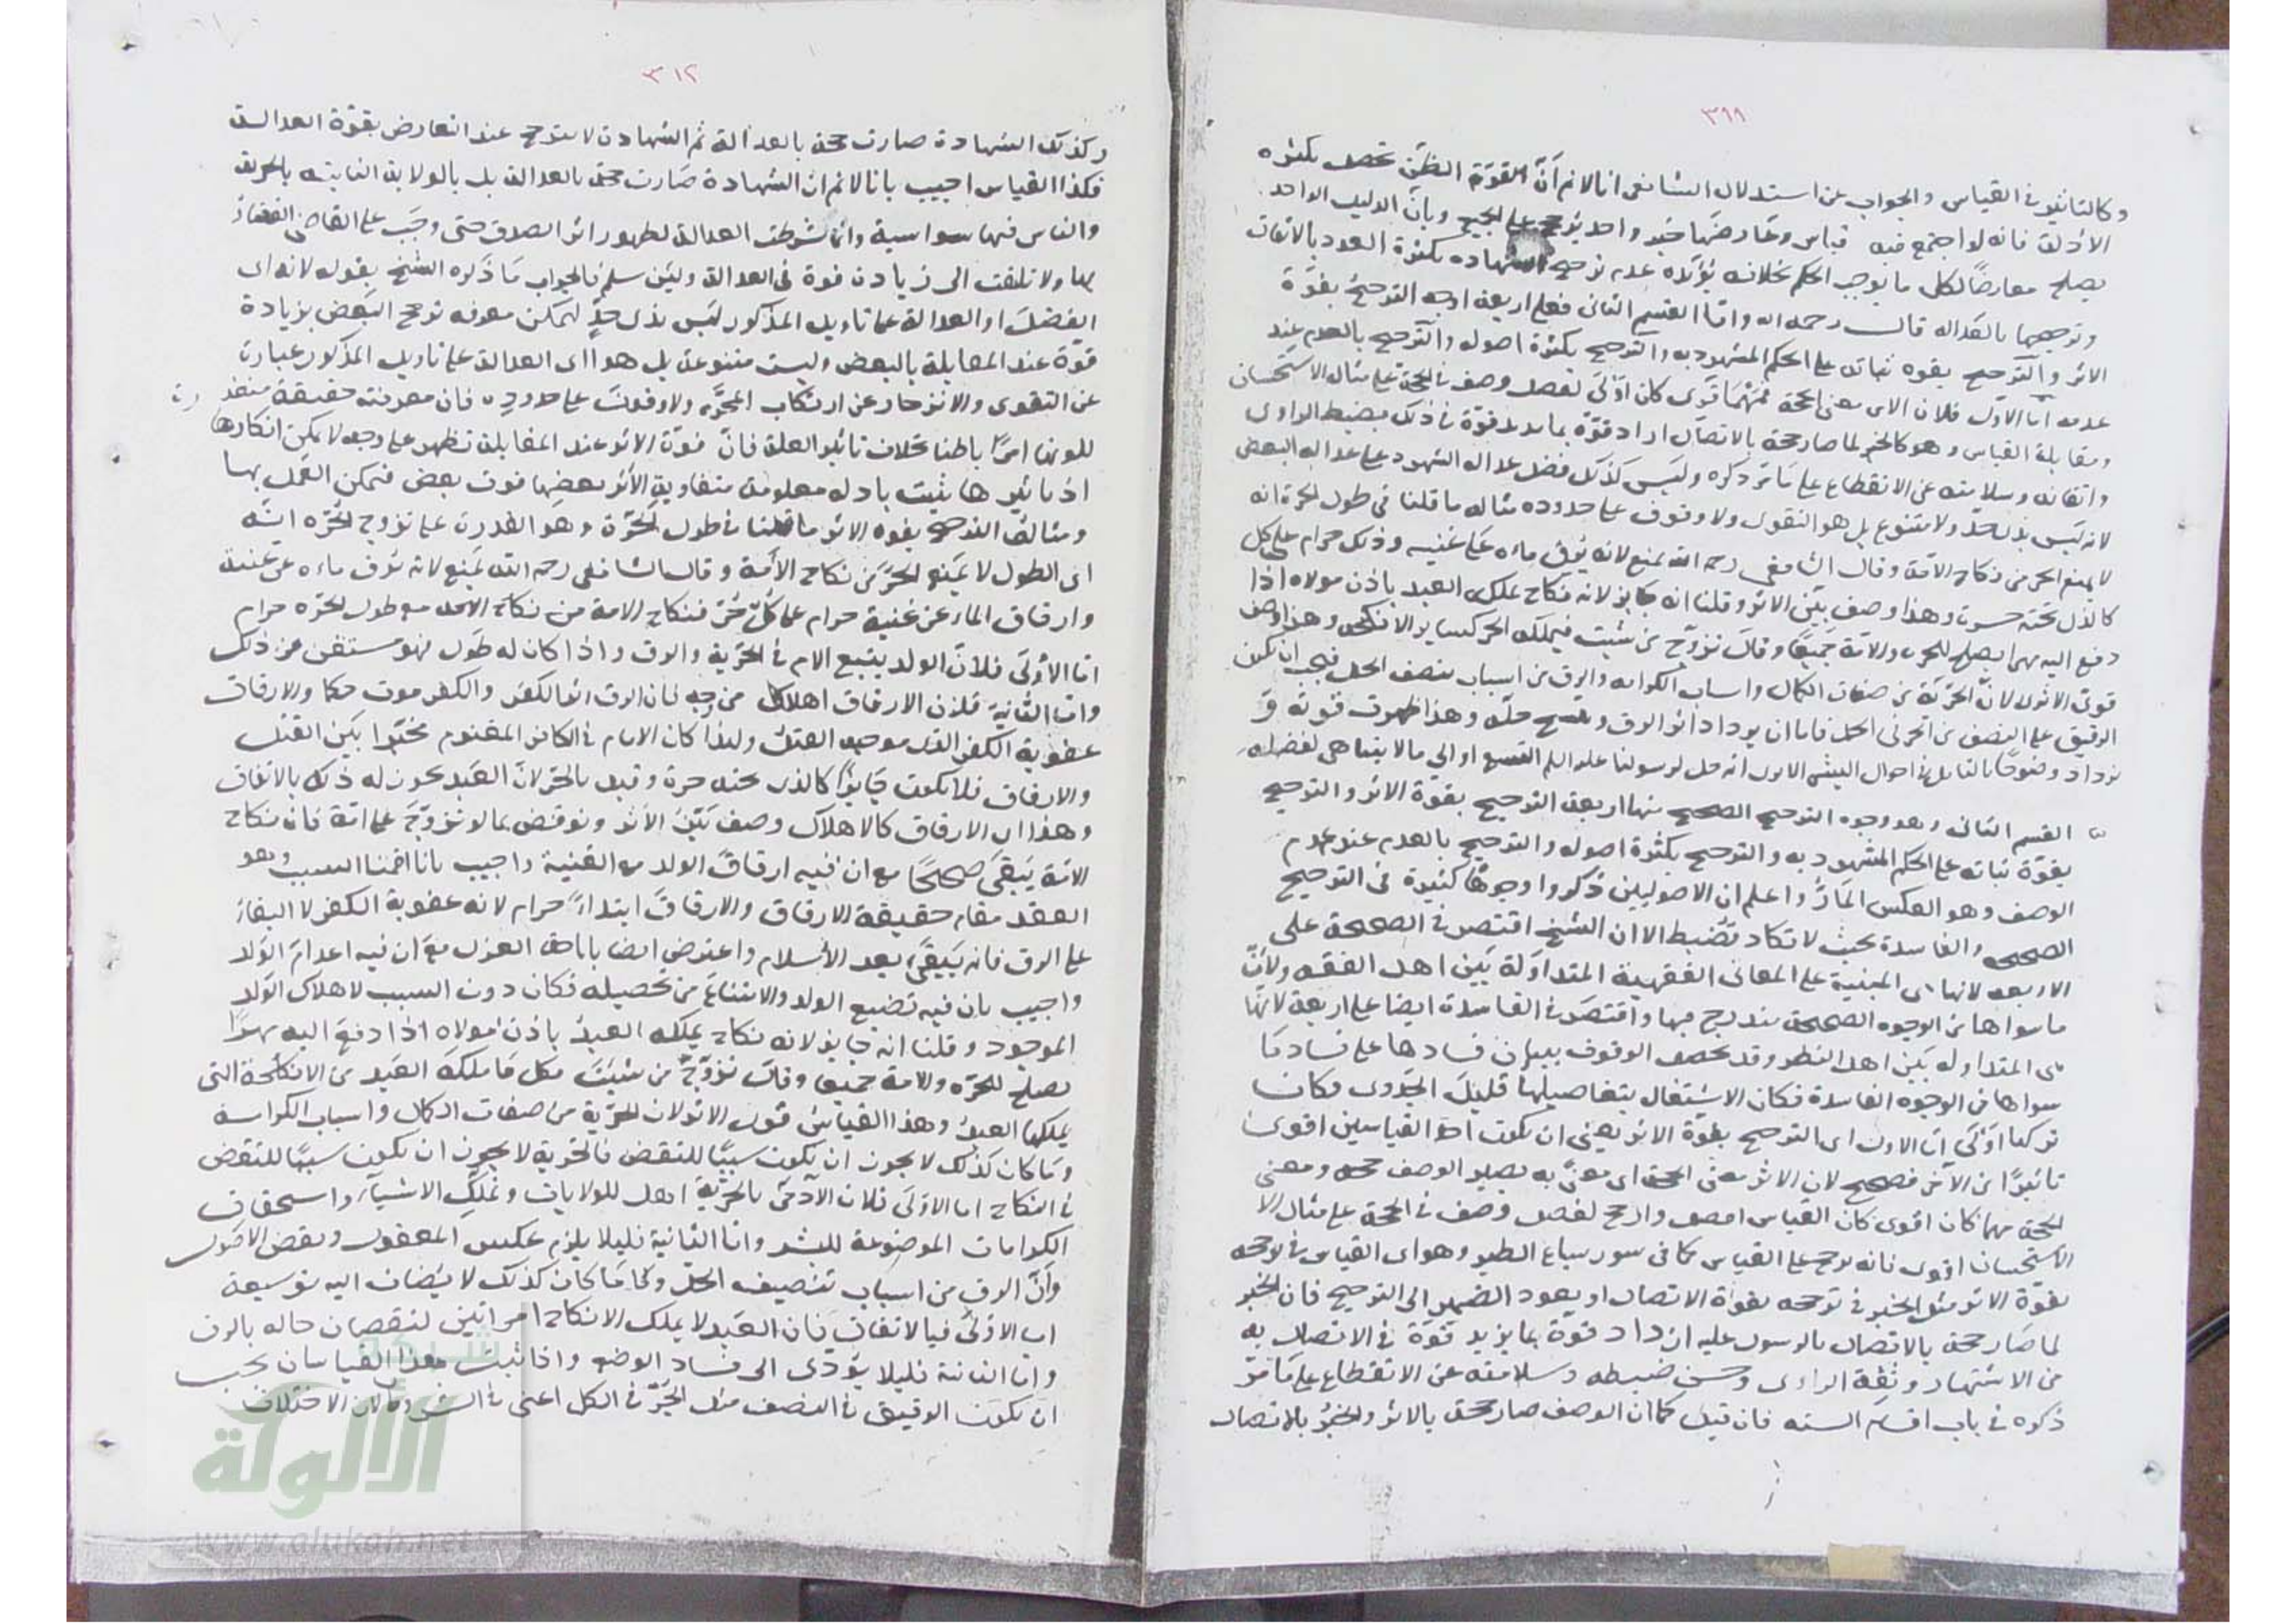 ٣٩٩
وكالتاثير في القياس والجواب عن استدلال الشافعي انا لا نم أنّ القوّة الظنّ تحصل بكثرة
الادلة فانه لو اجتمع فيه قياس وعارضها خبر واحد يترجح على الجميع وبانّ الدليل الواحد
يصلح معارضًا لكل ما يوجب الحكم بخلافه يؤيّده عدم ترجح الشهادة بكثرة العدد بالاتفاق
وترجيحها بالعدالة قال رحمه الله وامّا القسم الثاني فعلى اربعة اوجه الترجيح بقوّة
الاثر والترجيح بقوة ثباته على الحكم المشهود به والترجيح بكثرة اصوله والترجيح بالعدم عند
عدمه امّا الاول فلان الاثر معنى الحجة فمهما قوى كان اولى لفضل وصف في الحجة على مثال الاستحسان
ومقابلة القياس وهو كالخبر لما صار حجة بالاتصال ازداد قوّة بما يزيد قوّة في ذلك بضبط الراوى
واتقانه وسلامته عن الانقطاع على ما مرّ ذكره وليس كذلك فضل عدالة الشهود على عدالة البعض
لانه ليس بذى حدّ ولا متنوع بل هو التقوى ولا وقوف على حدوده مثاله ما قلنا في طول الحرة انه
لا يمنع الحر من نكاح الامة وقال الشافعي رحمه الله يمنع لانه يُرق ماءه على غنية وذلك حرام على كل
كالذى تحته حرة وهذا وصف بيّن الاثر وقلنا انه جايز لانه نكاح يملكه العبد باذن مولاه اذا
دفع اليه مهرا يصلح للحرة والامة جميعًا وقال تزوّج من شئت فيملكه الحر كساير الانكحة وهذا وصف
قوىّ الاثر لانّ الحرّية من صفات الكمال واسباب الكرامة والرق من اسباب تنصف الحل فيجب ان يكون
الرقيق على النصف من الحر في الحل فاما ان يزداد اثر الرق و حله وهذا ظهرت قوته و
يزداد وضوحًا بالتامل في احوال البشر الا يرى انه حل لرسولنا عليه السلم التسع او الى ما لا يتناهى لفضله
القسم الثاني وهو وجوه الترجيح الصحيح منها اربعة الترجيح بقوّة الاثر والترجيح
بقوّة ثباته على الحكم المشهود به والترجيح بكثرة اصوله والترجيح بالعدم عند عدم
الوصف وهو العكس المارّ واعلم ان الاصوليين ذكروا وجوهًا كثيرة في الترجيح
الصحيحه والفاسدة بحيث لا تكاد تضبط الا ان الشيخ اقتصر في الصحيحة على
الاربعة لانها هى المبنية على المعانى الفقهية المتداوَلة بين اهل الفقه ولانّ
ما سواها من الوجوه الصحيحة مندرج فيها واقتصر في الفاسدة ايضا على اربعة لانّها
هى المتداوله بين اهل النظر وقد يحصل الوقوف ببيان فسادها على فساد ما
سواها من الوجوه الفاسدة فكان الاشتغال بتفاصيلها قليل الجدوى فكان
تركها اَوْلى امّا الاول اى الترجيح بقوّة الاثر يعنى ان يكون احد القياسين اقوى
تاثيرًا من الآخر فصحيح لان الاثر معنى الحجة اى معنىً به يصير الوصف حجه ومعنى
الحجة مهما كان اقوى كان القياس وارجح لفضل وصف في الحجة على مثال الا
الاستحسان اقوى فانه يرجح على القياس كما في سور سباع الطير وهو اى القياس في ترجحه
بقوّة الاثر مثل الخبر في ترجحه بقوة الاتصال او يعود الضمير الى الترجيح فان الخبر
لما صار حجة بالاتصال بالرسول عليه ازداد قوّة بما يزيد قوّة في الاتصال به
من الاشتهار وثقة الراوى وحسن ضبطه وسلامته عن الانقطاع على ما مرّ
ذكره في باب اقسام السنه فان قيل كما ان الوصف صار حجة بالاثر والخبر بالاتصال
٣١٢
وكذلك الشهادة صارت حجة بالعدالة ثم الشهادة لا تترجح عند التعارض بقوّة العدالة
فكذا القياس اجيب بانا لا نم ان الشهادة صارت حجة بالعدالة بل بالولاية الثابتة بالحرية
والناس فيها سواسية وانما شرطت العدالة لظهور اثر الصدق حتى وجب على القاضى القضاء
بها ولا تلتفت الى زيادة قوة في العدالة ولئن سلم فالجواب ما ذكره الشيخ بقوله لانه اى
الفضل او العدالة على تاويل المذكور ليس بذى حدٍّ ليمكن معرفه ترجح البعض بزيادة
قوّة عند المقابلة بالبعض وليست متنوعة بل هو اى العدالة على تاويل المذكور عبارة
عن التقوى والانزجار عن ارتكاب المحرّم ولا وقوف على حدوده فان معرفته حقيقة متعذ رة
للونها امرًا باطنا بخلاف تاثير العلة فانّ قوّة الاثر عند المقابلة تظهر على وجه لا يمكن انكارها
اذ تاثيرها يثبت بادلة معلومة متفاوتة الاثر بعضها فوق بعض فيمكن العمل بها
ومثاله الترجيح بقوه الاثر ما قلنا في طول الحرّة وهو القدرة على تزوج الحرّه انّه
اى الطول لا يمنع الحرّ من نكاح الأمة وقال الشافعي رحمه الله يمنع لانه يرق ماءه عن غنية
وارقاق الماء عن غنية حرام على كلّ حرّ فنكاح الامة من نكاح الامة مع طول الحرّه حرام
امّا الأولى فلانّ الولد يتبع الام في الحرّية والرق واذا كان له طول فهو مستغنى عن ذلك
وامّا الثانية فلان الارقاق اهلاك من وجه لان الرق اثر الكفر والكفر موت حكما والارقاق
عقوبة الكفر القتل ولهذا كان الامام في الكافر المغنوم مخيّرا بين القتل
والارقاق فلا يكون جايزًا كالذى تحته حرة وقيد بالحرّ لان العبد يجوز له ذلك بالاتفاق
وهذا اى الارقاق كالاهلاك وصف بيّن الاثر ونوقض بما لو تزوّج على امة فان نكاح
الامة يبقى صحيحًا مع ان فيه ارقاق الولد مع الغنية واجيب بانا اقمنا السبب وهو
العقد مقام حقيقة الارقاق والارقاق ابتداءً حرام لانه عقوبة الكفر لا البقاء
على الرق فانه يبقى بعد الاسلام واعترض ايضا باباحة العزل مع ان فيه اعدام الولد
واجيب بان فيه تضيع الولد والامتناع من تحصيله فكان دون السبب لاهلاك الولد
الموجود وقلنا انه جايز لانه نكاح يملكه العبد باذن مولاه اذا دفع اليه مهرًا
يصلح للحرّه والامة جميعا وقال تزوّج من شئت فكل ما يملكه العبد من الانكحة التى
يملكها الحرّ وهذا القياس قوى الاثر لان الحرّية من صفات الكمال واسباب الكرامة
وما كان كذلك لا يجوز ان يكون سببًا للنقص فالحرية لا يجوز ان يكون سببًا للنقص
في النكاح اما الاولى فلان الآدمى بالحرّيّة اهل للولايات وتملّك الاشياء واستحقاق
الكرامات الموضوعة للبشر وامّا الثانية فليلا يلزم عكس المعقول ونقض الاصول
وانّ الرق من اسباب تنصيف الحلّ وكل ما كان كذلك لا يضاف اليه توسيعة
اما الاولى فبالاتفاق فان العبد لا يملك الا نكاح امراتين لنقصان حاله بالرق
واما الثانية فليلا يؤدى الى فساد الوضع واذا ثبت هذان القياسان يجب
ان يكون الرقيق في النصف مثل الحرّ في الكل اعنى في
شبكة
الألوكة
www.alukah.net